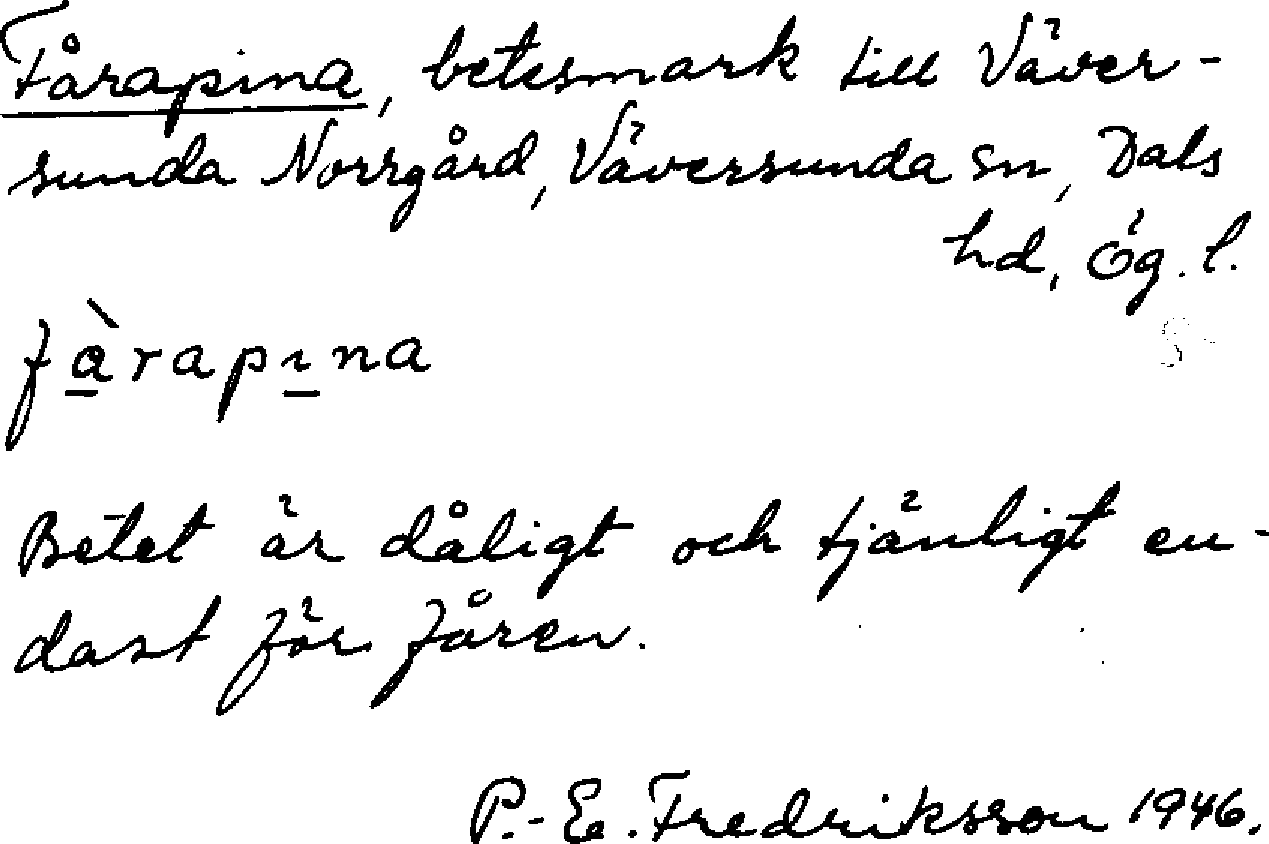 Fårapina, betesmark till Väver-
sunda Norrgård, Väversunda sn, Dals
hd, Ög. l.
fàrapına
Betet är dåligt och tjänligt en-
dast för fåren.
P.-E. Fredriksson 1946.